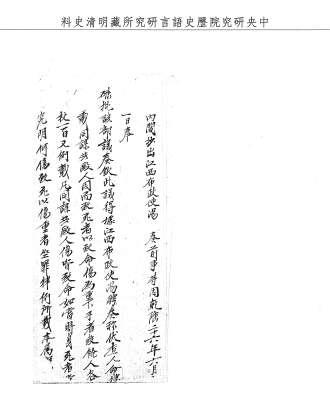 中央研究院歷史語言研究所藏明清史料
內閣抄出江西布政使湯 奏前事等因乾隆二十六年六月
一日奉
硃批該部議奏欽此議得據江西布政使湯聘奏稱伏查人命律
載同謀共毆人因而致死者以致命傷為重下手者絞餘人各
杖一百又例載凡同謀共毆人傷皆致命如當時身死者
究明何傷致死以傷重者坐罪律例所載本屬